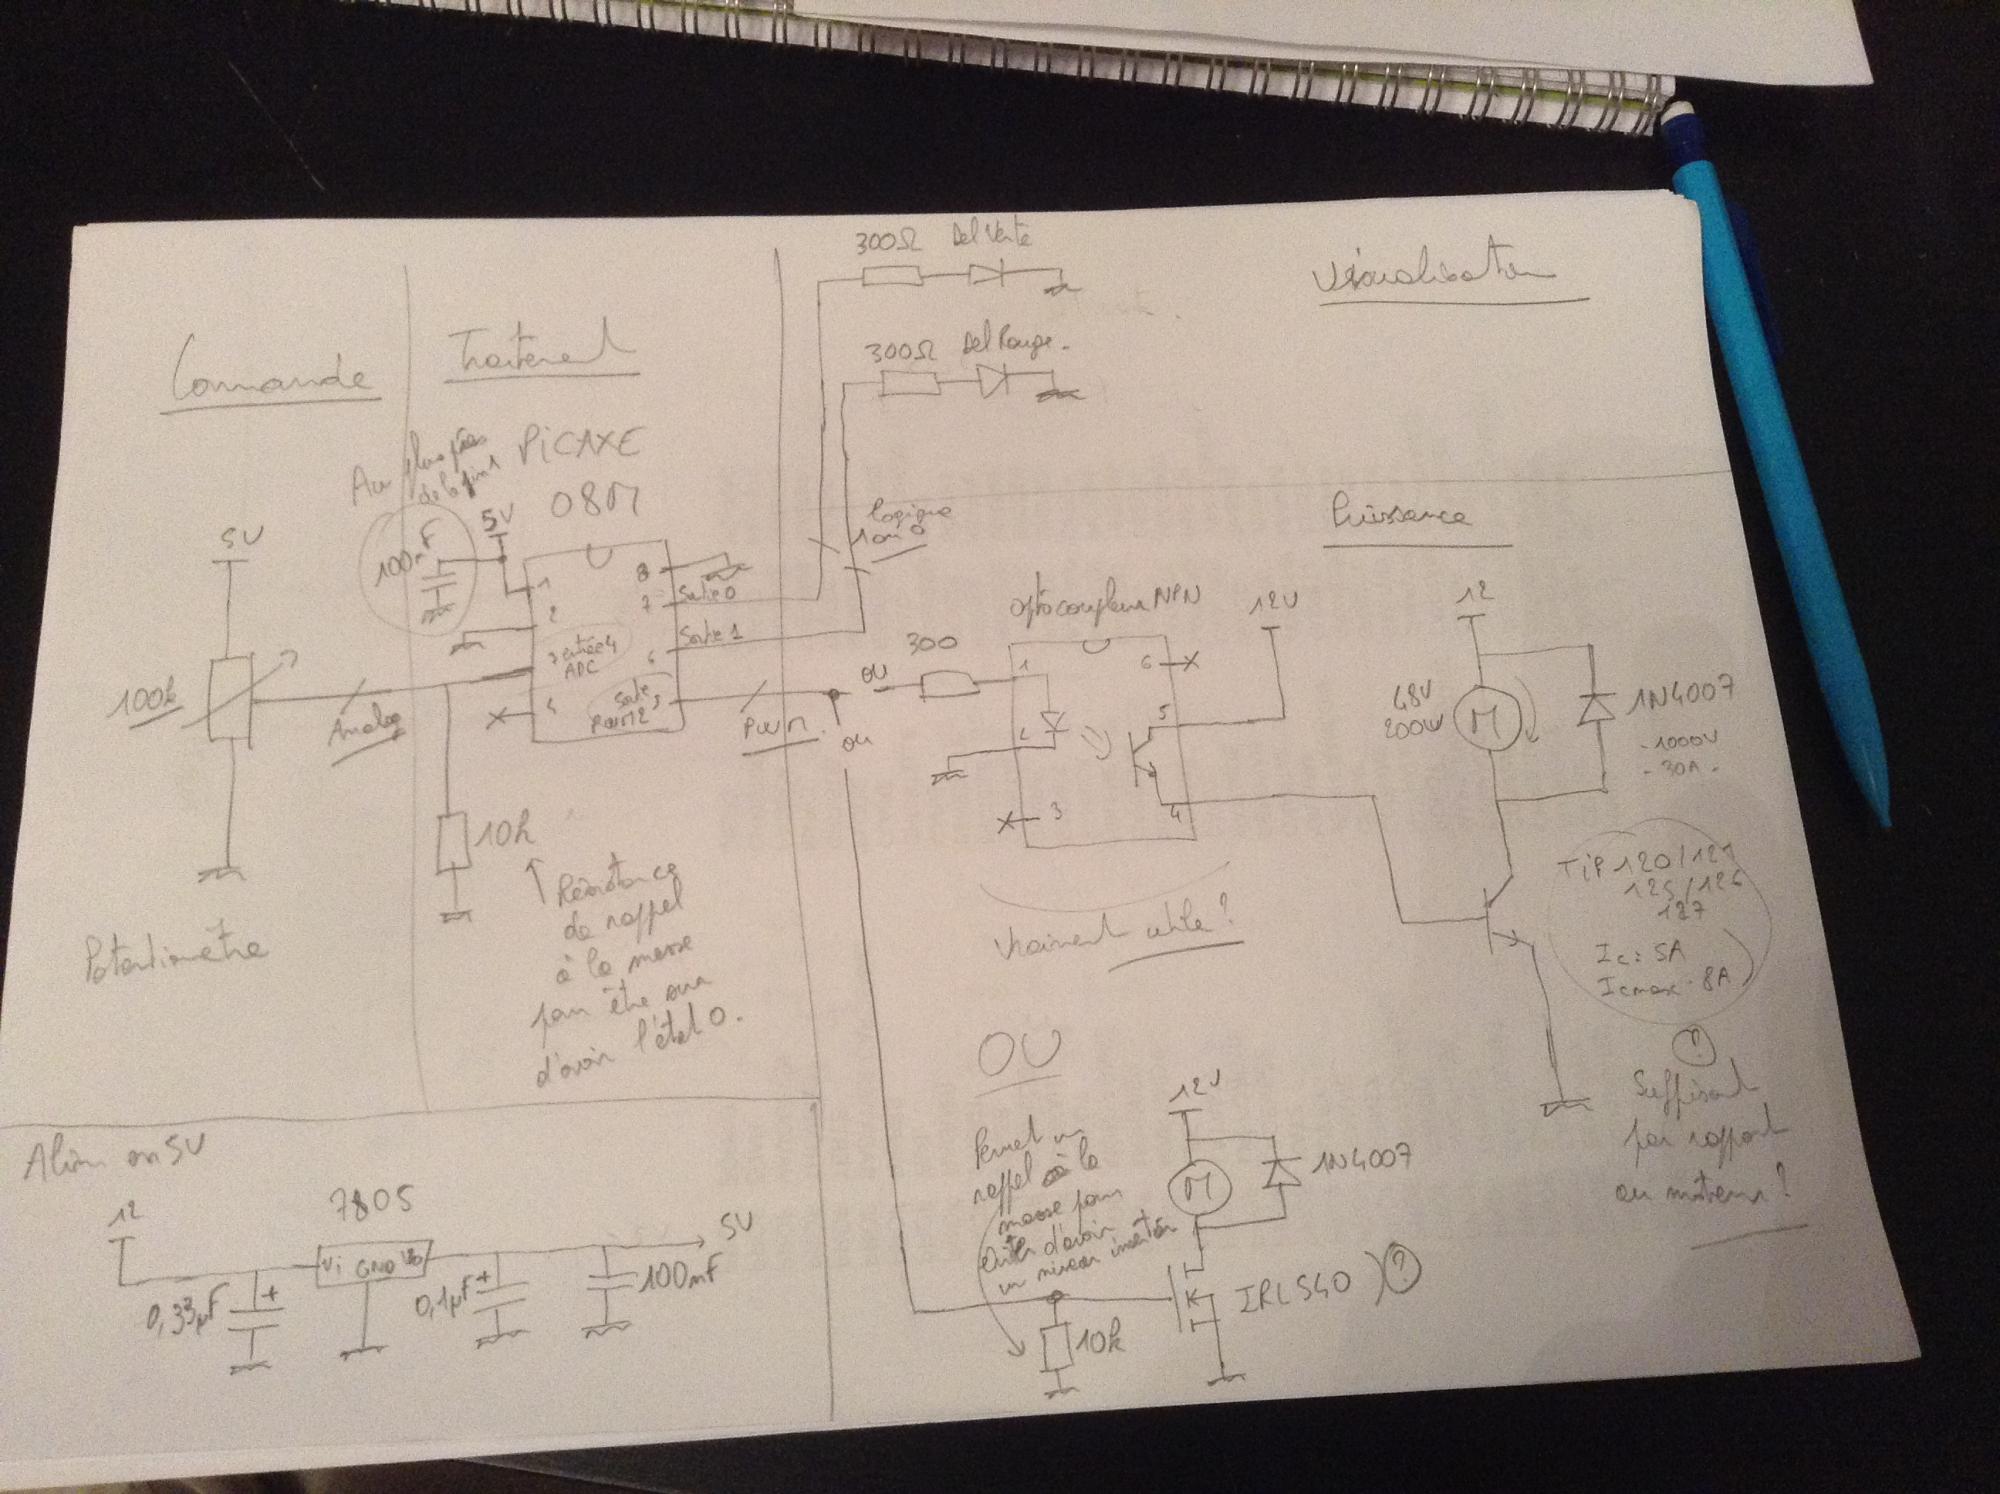 Commande
5V
100k
Analog
Potentiomètre
Traitement
Au plus près
de la pin 1
PICAXE
08M
5V
100nF
1
2
3 entrée 4
ADC
4
8
7
Sortie 0
6
Sortie 1
Sortie 5
PWM2
PWM
10k
Résistance
de rappel
à la masse
pour être sur
d'avoir l'état 0.
Visualisation
300Ω Del Verte
300Ω Del Rouge.
logique
1 ou 0
Puissance
ou
ou
300
optocoupleur NPN
1
2
3
6
5
4
12V
Vraiment utile?
12
48V
200W
M
1N4007
-1000V
-30A-
TIP120/121
125/126
127
Ic: 5A
Icmax - 8A
?
Suffisant
par rapport
au moteur?
OU
12V
Permet un
rappel à la
masse pour
éviter d'avoir
un niveau incertain
M
1N4007
IRL540 ) ?
10k
Alim en 5V
12
7805
Vi GND Vo
0,33µF +
0,1µF +
100nF
5V